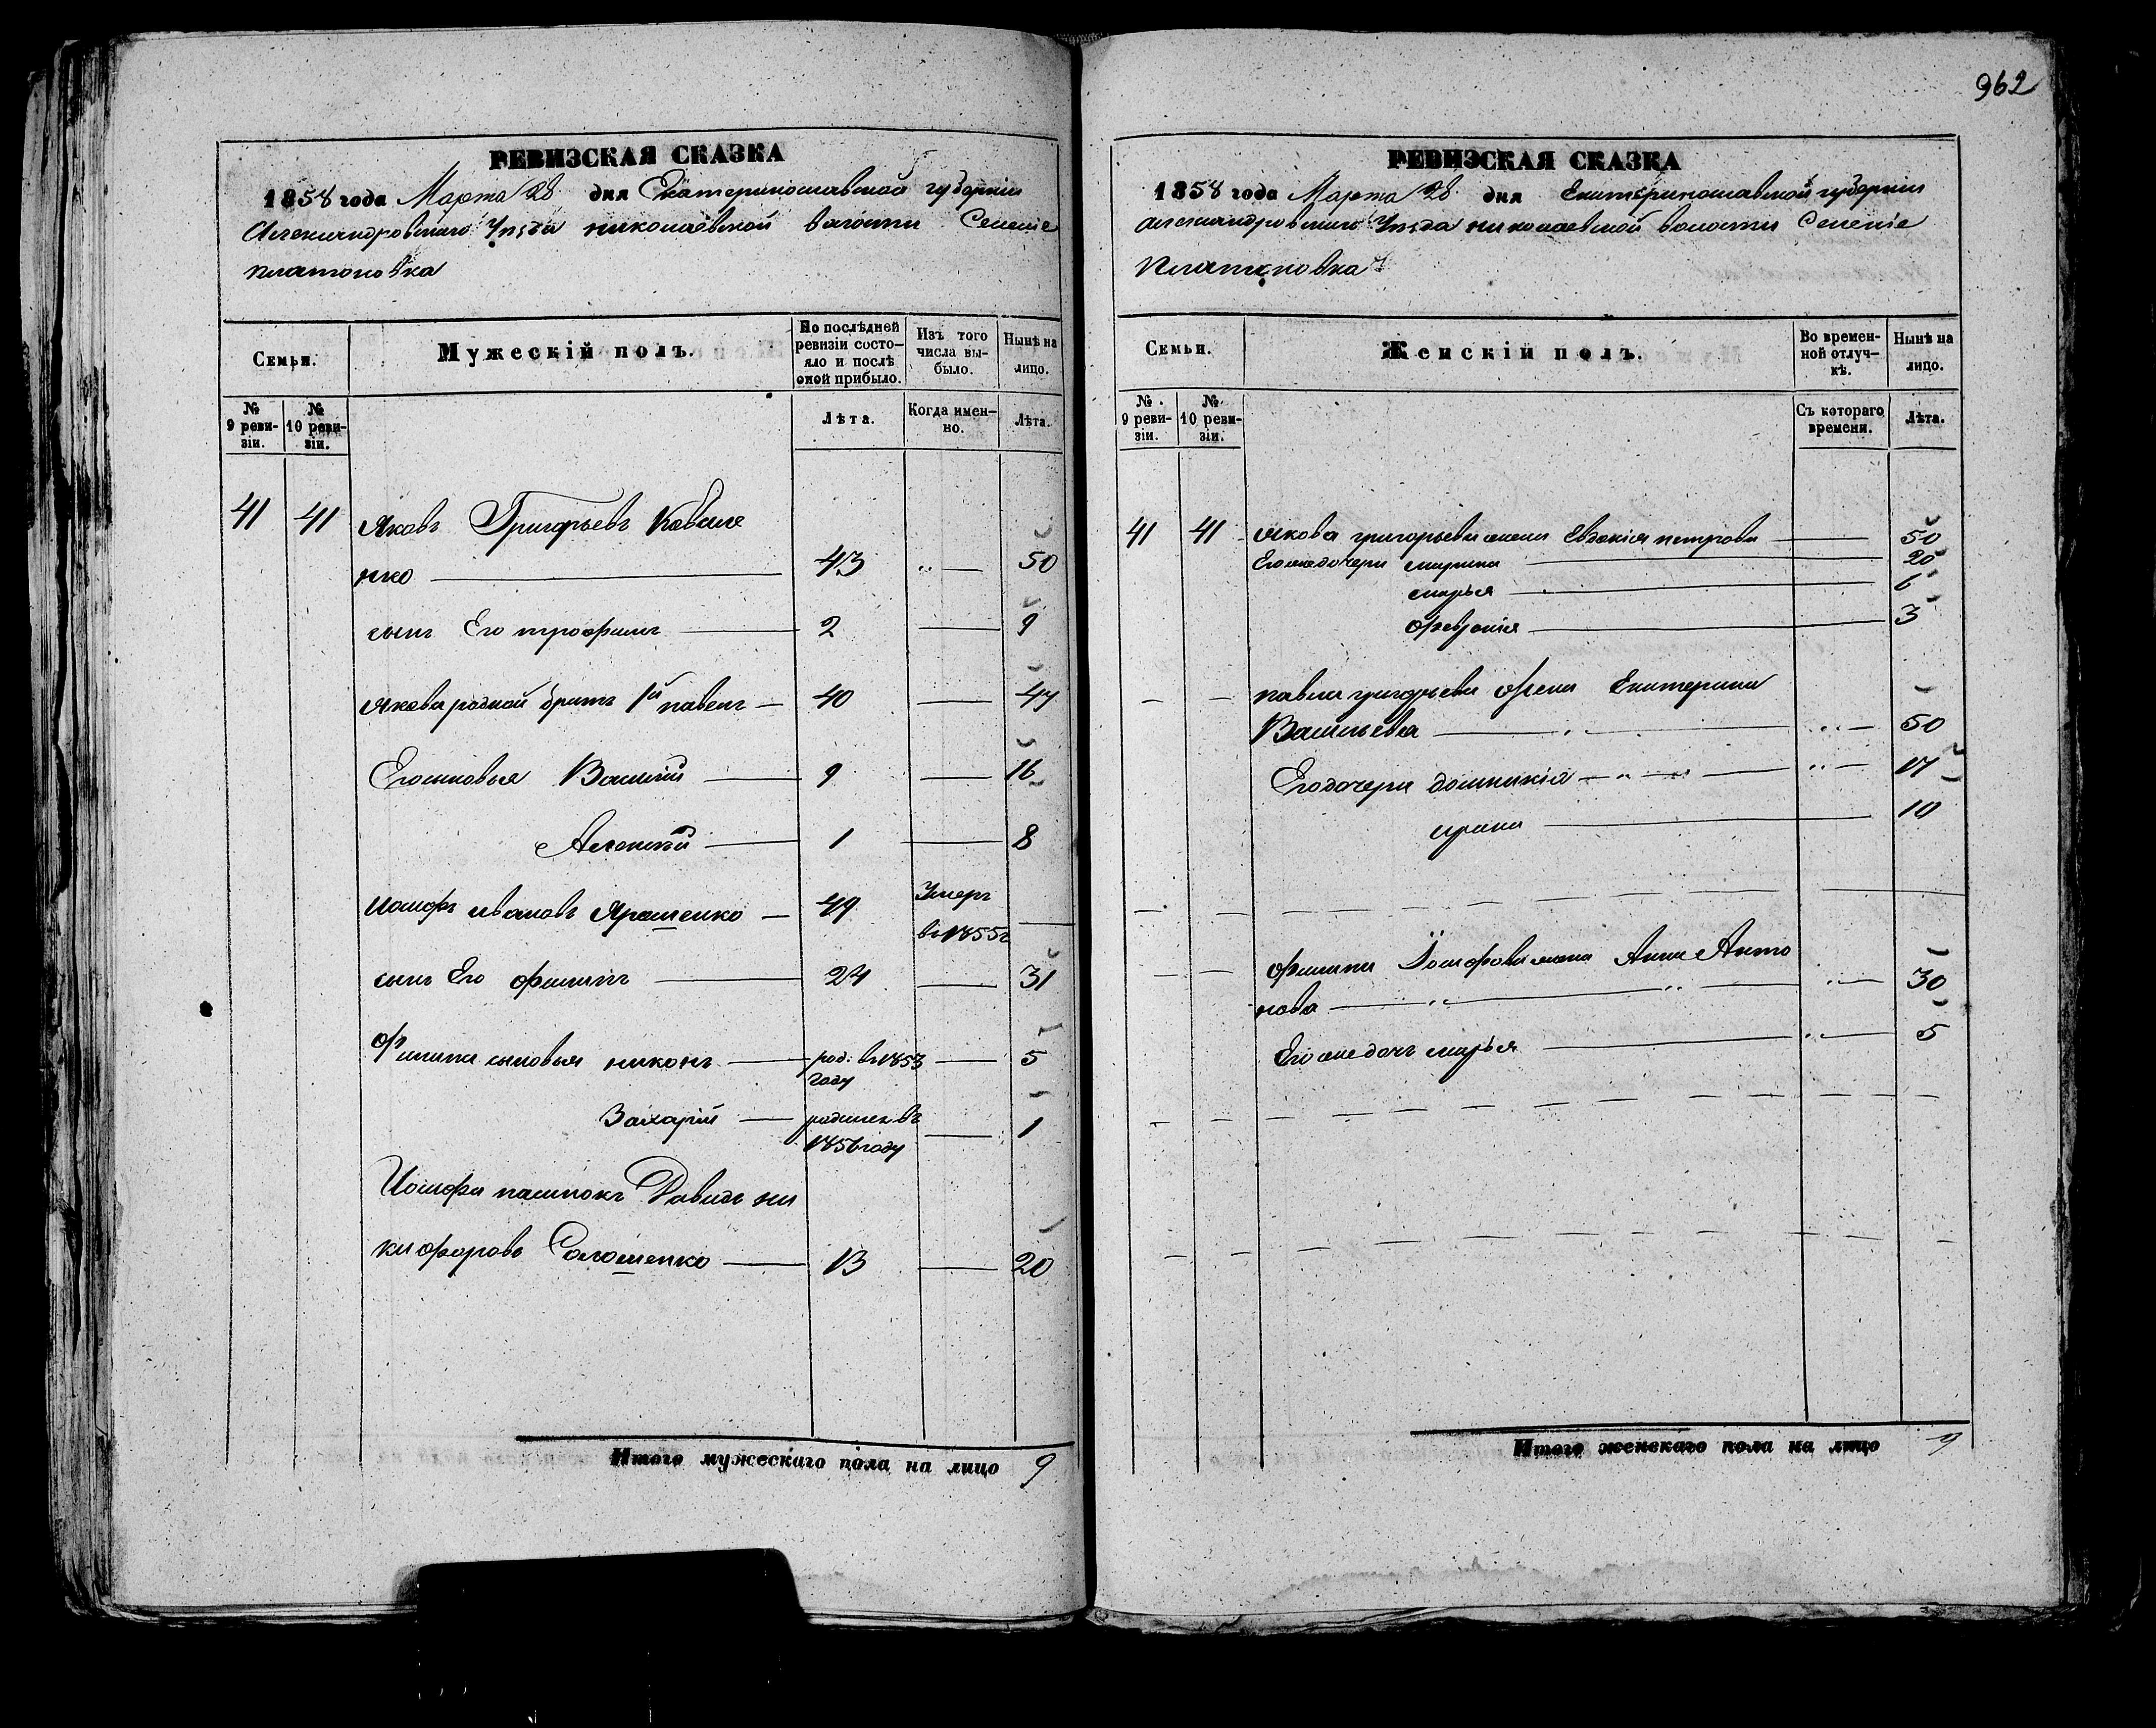 962
РЕВИЗСКАЯ СКАЗКА
1858 года Марта 28 дня Екатеринославской губерніи
Александровскаго Уѣзда николаевской волости Селеніе
платоновка
Семьи.
Мужескій полъ.
По послѣдней ревизіи состояло и послѣ оной прибыло.
Изъ того числа выбыло.
Нынѣ на лицо.
№ 9 ревизіи.
№ 10 ревизіи.
Лѣта.
Когда именно.
Лѣта.
41 41 Яковъ Григорьевъ Ковале
нко 43 50
сынъ Его трофимъ 2 9
якова родной братъ 1й павелъ 40 47
Его сыновья Василій 9 16
Алексѣй 1 8
иосифъ ивановъ Ярошенко 49 Умеръ
въ 1855г
сынъ Его филипъ 24 31
филипа сыновья никонъ род: въ 1853 5
году
Захарій родился въ 1
1856 году
Иосифа пасынокъ Давидъ ни
кифоровъ Солошенко 13 20
Итого мужескаго пола на лицо 9
РЕВИЗСКАЯ СКАЗКА
1858 года Марта 28 дня Екатеринославской губерніи
александровскаго Уѣзда николаевской волости Селеніе
Платоновка
Семьи.
Женскій полъ.
Во временной отлучкѣ.
Нынѣ на лицо.
№ 9 ревизіи.
№ 10 ревизіи.
Съ котораго времени.
Лѣта.
41 41 якова григорьева жена Евдокія петрова 50
Его же дочери марина 20
марья 6
февронія 3
павла григорьева жена Екатерина
Васильева 50
Его дочери домникія 17
ирина 10
филипа Іосифова жена Анна Анто
нова 30
Его же дочь марья 5
Итого женскаго пола на лицо 9